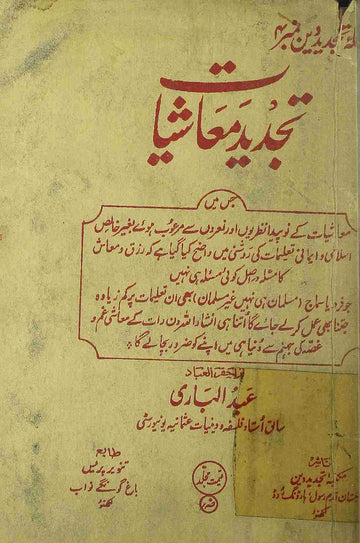 تجدید دین نمبر ۴
تجدید معاشیات
جس میں
معاشیات کے نوپید نظریوں اور نعروں سے مرعوب ہوئے بغیر خالص
اسلامی و ایمانی تعلیمات کی روشنی میں واضح کیا گیا ہے کہ رزق و معاش
کا مسئلہ دراصل کوئی مسئلہ ہی نہیں
جو فرد یا سماج (مسلمان ہی نہیں غیر مسلمان) بھی ان تعلیمات پر کم زیادہ
جتنا بھی عمل کرلے جائے گا اتنا ہی انشاء اللہ دن رات کے معاشی غم و
غصہ کی جہنم سے دنیا ہی میں اپنے کو ضرور بچالے گا
احقر العباد
عبد الباری
سابق استاذ فلسفہ و دینیات عثمانیہ یونیورسٹی
طابع
تنویر پریس
باغ گونگے نواب
لکھنؤ
قیمت مجلد
ناشر
مکتبۂ تجدید دین
ہارڈنگ روڈ
لکھنؤ